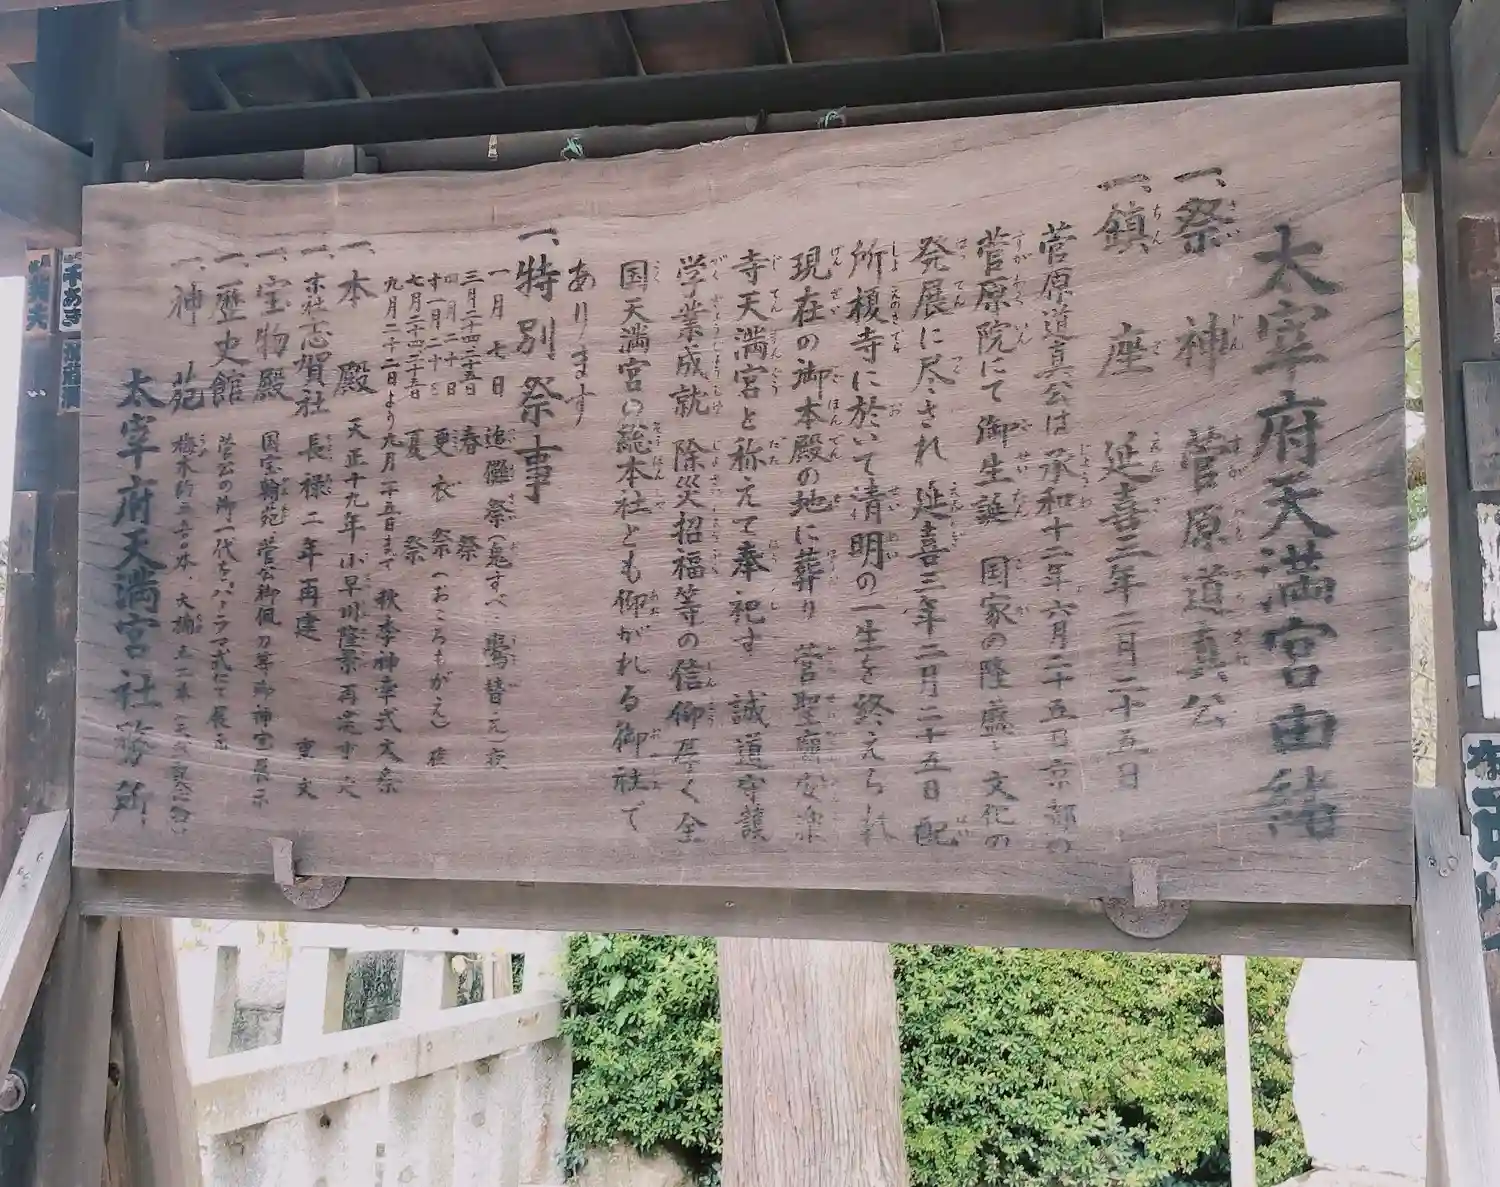 太宰府天満宮由緒
一、祭神 菅原道真公
一、鎮座 延喜三年二月二十五日
菅原道真公は承和十二年六月二十五日京都の
菅原院にて御生誕 国家の隆盛と文化の
発展に尽され 延喜三年二月二十五日 配
所榎寺に於いて清明の一生を終えられ
現在の御本殿の地に葬り 菅聖廟安楽
寺天満宮と称えて奉祀す 誠道守護
学業成就 除災招福等の信仰厚く全
国天満宮の総本社とも仰がれる御社で
あります
一、特別祭事
一月七日 追儺祭(鬼すべ 鷽替え)夜
三月二十四二十五日 春祭
四月二十日 更衣祭(おころもがえ)
十一月二十日
七月二十四二十五日 夏祭
九月二十二日より九月二十五日まで 秋季神幸式大祭
一、本殿 天正十九年 小早川隆景再建 重文
一、末社志賀社 長禄二年再建 重文
一、宝物殿 国宝翰苑 菅公御佩刀等御神宝展示
一、歴史館 菅公の御一代をパノラマ式にて展示
一、神苑 梅木約 本、大樟五 本
太宰府天満宮社務所